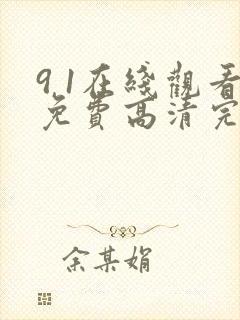 9.1在綫觀看
免費高清完
余某娟